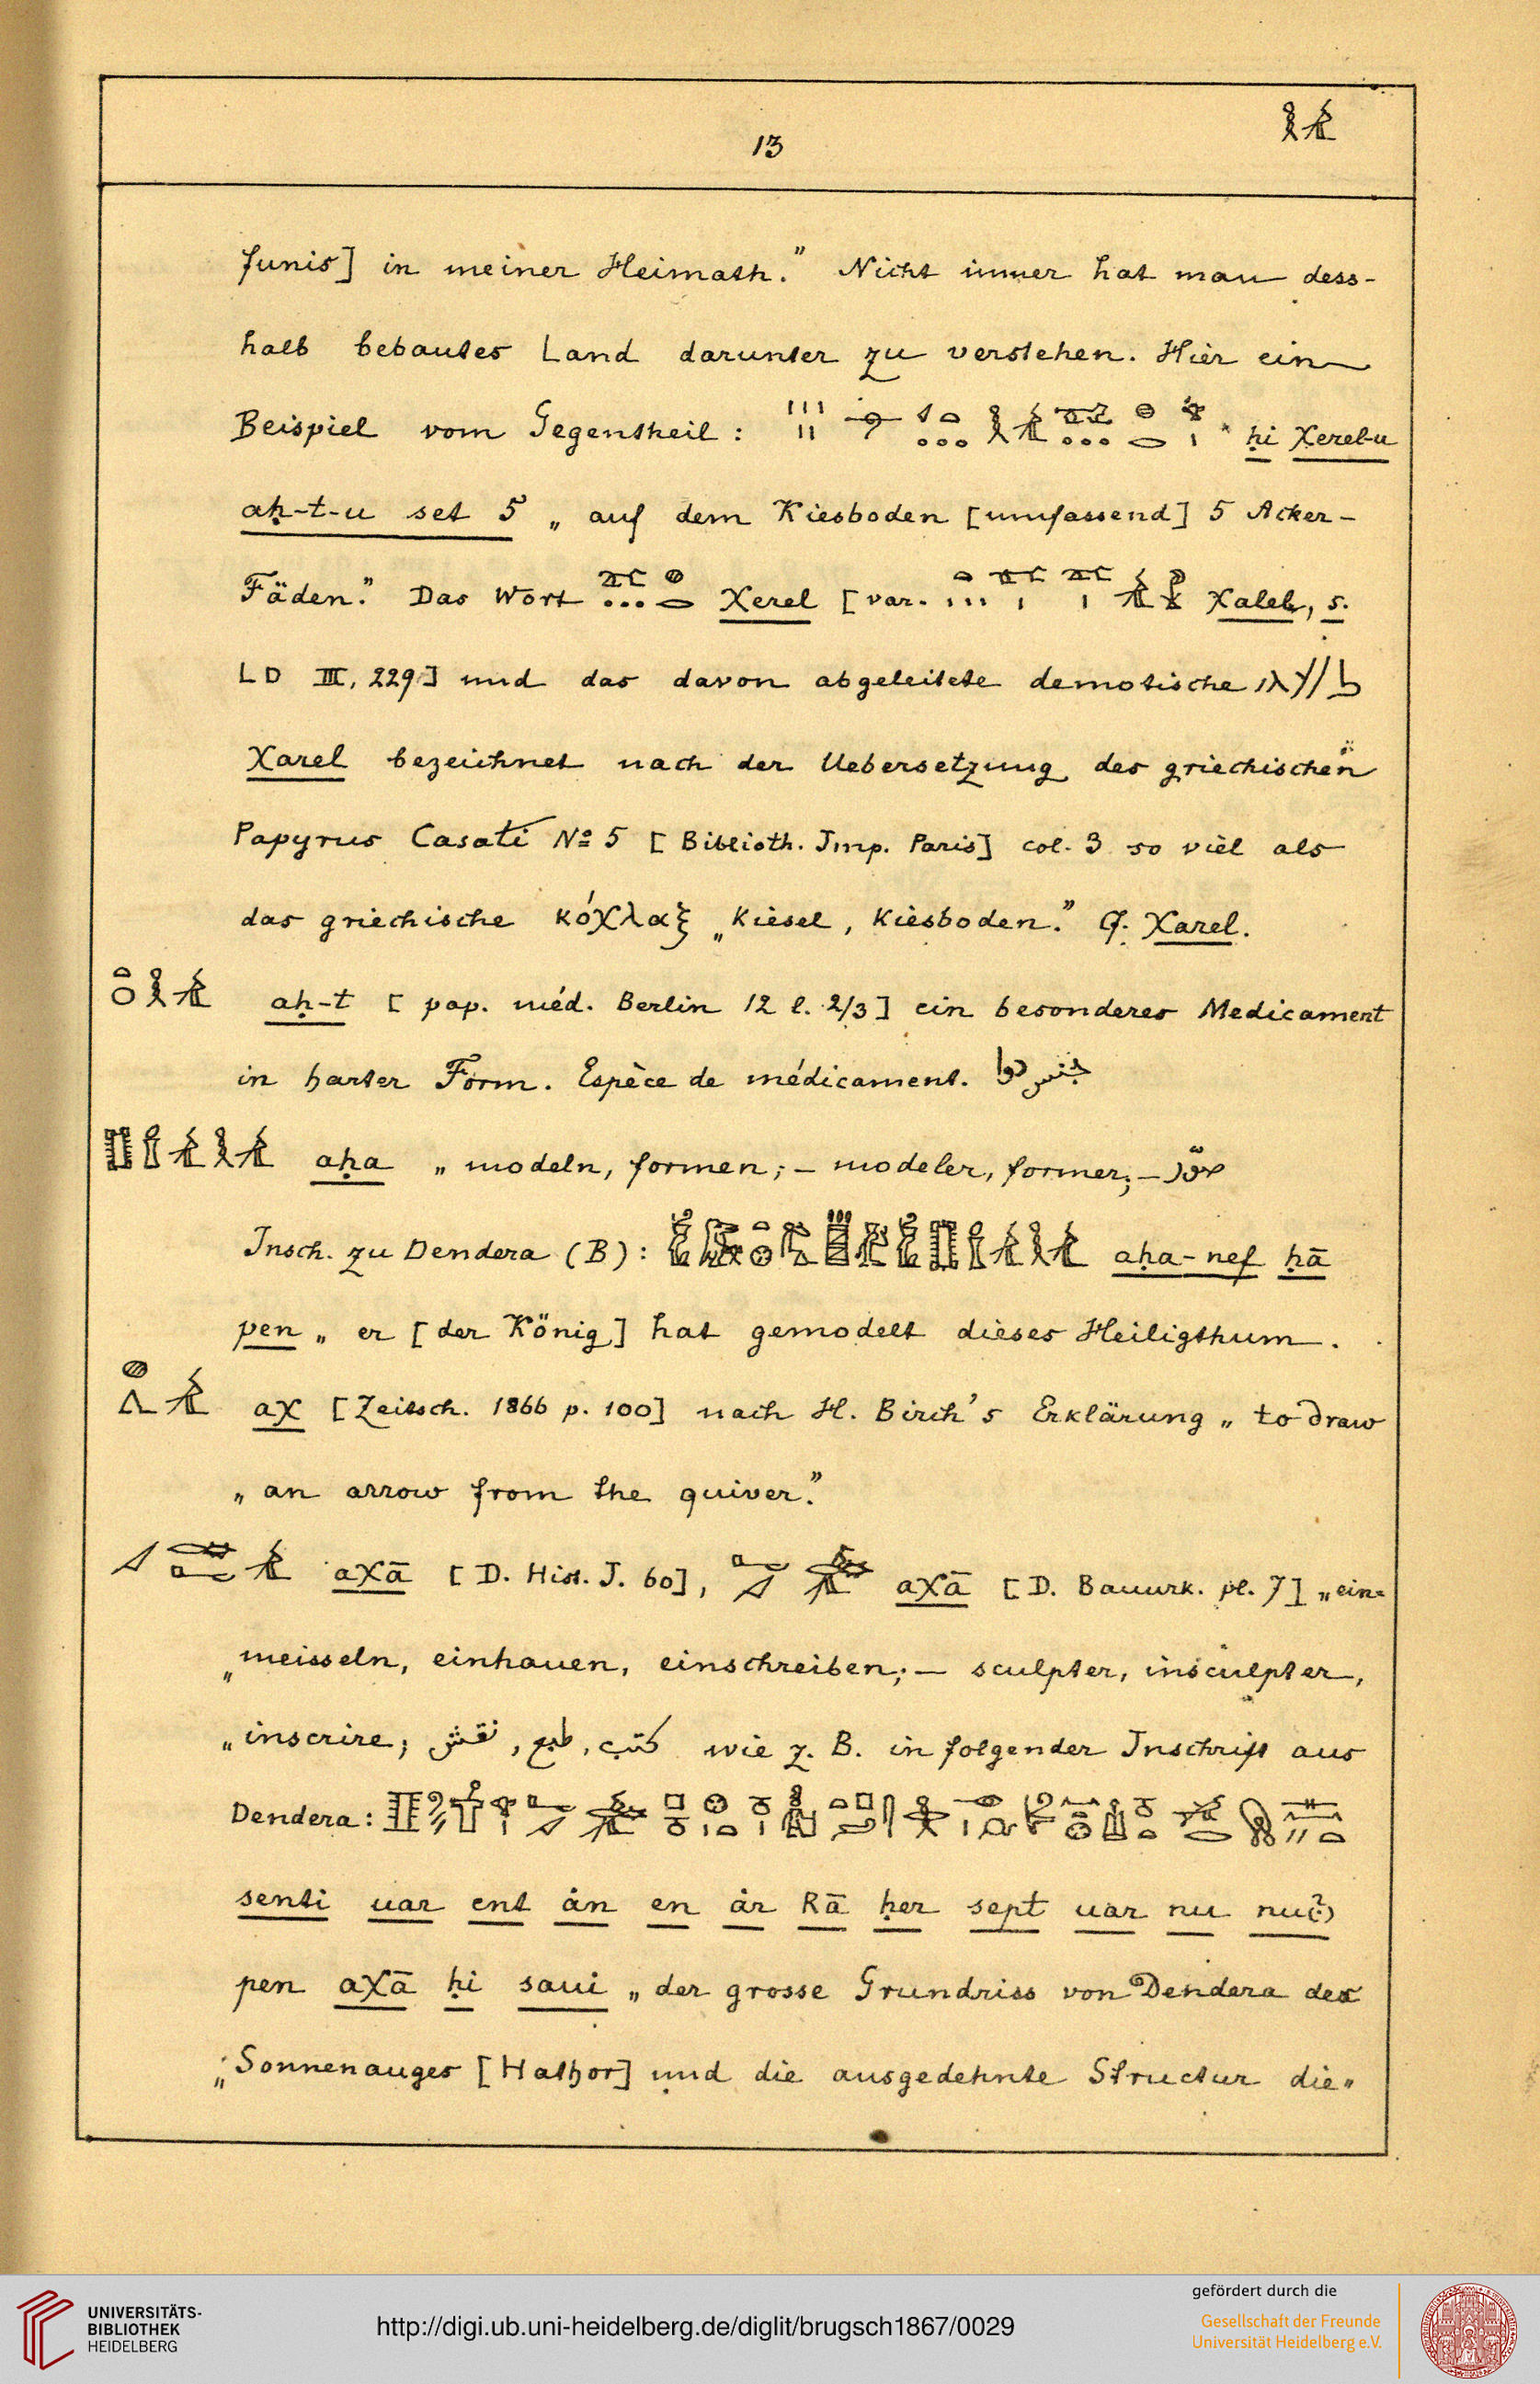 13
funis] in meiner Heimath." Nicht immer hat man dess-
halb bebautes Land darunter zu verstehen. Hier ein
Beispiel vom Gegentheil: ḥi χereb-u
aḥ-t-u set 5 „ auf dem Kiesboden [umfassend] 5 Acker-
Fäden." Das Wort χerel [var. χaleb, s.
LD III, 229] und das davon abgeleitete demotische
χarel bezeichnet nach der Uebersetzung des griechischen
Papyrus Casati No 5 [Biblioth. Imp. Paris] col. 3 so viel als
das griechische κόχλαξ „Kiesel, Kiesboden." Cf. χarel.
aḥ-t [pap. méd. Berlin 12 l. 2/3] ein besonderes Medicament
in harter Form. Espèce de médicament. جنس دوا
aḥa „ modeln, formen; – modeler, former; – صوّر
Insch. zu Dendera (B): aḥa-nef ḥā
pen „ er [der König] hat gemodelt dieses Heiligthum.
aχ [Zeitsch. 1866 p. 100] nach H. Birch's Erklärung „ to draw
„ an arrow from the quiver."
aχā [D. Hist. I. 60], aχā [D. Bauurk. pl. 7] „ein=
„meisseln, einhauen, einschreiben; – sculpter, insculpter,
„inscrire; نقش , طبع , كتب wie z. B. in folgender Inschrift aus
Dendera:
senti uar ent ȧn en ȧr Rā ḥer sept uar nu nu(?)
pen aχā ḥi saui „ der grosse Grundriss von Dendera des
„Sonnenauges [Hathor] und die ausgedehnte Structur die„
UNIVERSITÄTS-
BIBLIOTHEK
HEIDELBERG
http://digi.ub.uni-heidelberg.de/diglit/brugsch1867/0029
gefördert durch die
Gesellschaft der Freunde
Universität Heidelberg e.V.